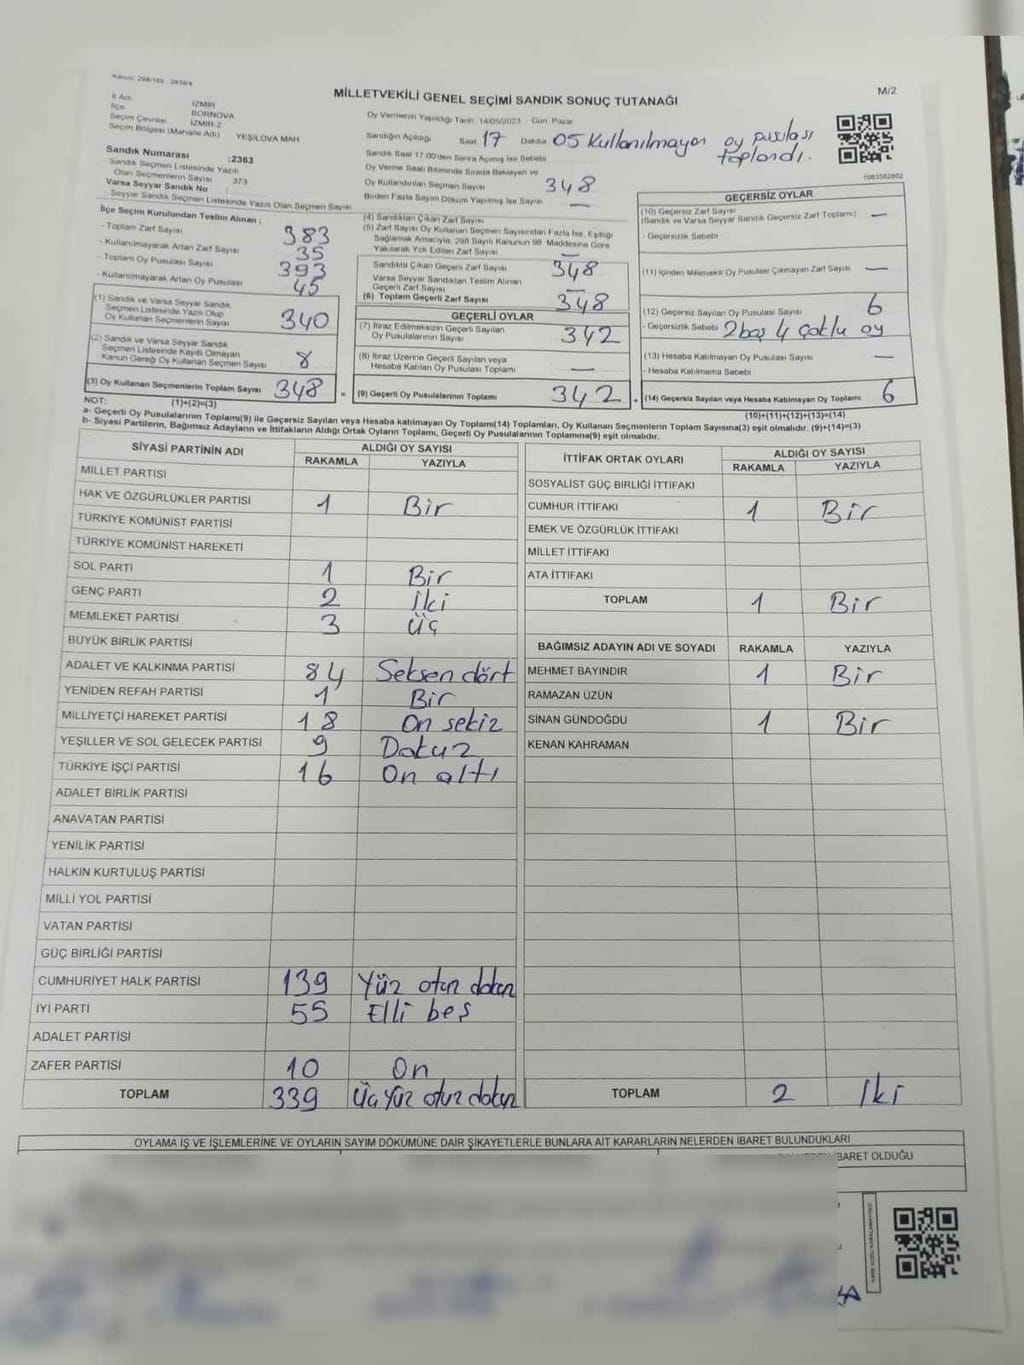 Kanun: 298/105 2839/4
MİLLETVEKİLİ GENEL SEÇİMİ SANDIK SONUÇ TUTANAĞI
M/2
İl Adı İZMİR
İlçe BORNOVA
Seçim Çevresi İZMİR-2
Seçim Bölgesi (Mahalle Adı) YEŞİLOVA MAH
Sandık Numarası :2363
- Sandık Seçmen Listesinde Yazılı
Olan Seçmenlerin Sayısı 373
Varsa Seyyar Sandık No :
- Seyyar Sandık Seçmen Listesinde Yazılı Olan Seçmen Sayısı
Oy Vermenin Yapıldığı Tarih :14/05/2023 Gün: Pazar
Sandığın Açıldığı Saat 17 Dakika 05 Kullanılmayan oy pusulası toplandı.
Sandık Saat 17:00'den Sonra Açılmış İse Sebebi
Oy Verme Saati Bitiminde Sırada Bekleyen ve
Oy Kullandırılan Seçmen Sayısı 348
Birden Fazla Sayım Döküm Yapılmış İse Sayısı —
1083582802
İlçe Seçim Kurulundan Teslim Alınan :
- Toplam Zarf Sayısı 383
- Kullanılmayarak Artan Zarf Sayısı 35
- Toplam Oy Pusulası Sayısı 393
- Kullanılmayarak Artan Oy Pusulası 45
(1) Sandık ve Varsa Seyyar Sandık
Seçmen Listesinde Yazılı Olup
Oy Kullanan Seçmenlerin Sayısı 340
(2) Sandık ve Varsa Seyyar Sandık
Seçmen Listesinde Kayıtlı Olmayan
Kanun Gereği Oy Kullanan Seçmen Sayısı 8
(3) Oy Kullanan Seçmenlerin Toplam Sayısı 348 =
(1)+(2)=(3)
(4) Sandıktan Çıkan Zarf Sayısı
(5) Zarf Sayısı Oy Kullanan Seçmen Sayısından Fazla İse, Eşitliği
Sağlamak Amacıyla, 298 Sayılı Kanunun 98. Maddesine Göre
Yakılarak Yok Edilen Zarf Sayısı —
Sandıkta Çıkan Geçerli Zarf Sayısı 348
Varsa Seyyar Sandıktan Teslim Alınan
Geçerli Zarf Sayısı —
(6) Toplam Geçerli Zarf Sayısı 348
GEÇERLİ OYLAR
(7) İtiraz Edilmeksizin Geçerli Sayılan
Oy Pusulalarının Sayısı 342
(8) İtiraz Üzerine Geçerli Sayılan veya
Hesaba Katılan Oy Pusulası Toplamı —
(9) Geçerli Oy Pusulalarının Toplamı 342 +
GEÇERSİZ OYLAR
(10) Geçersiz Zarf Sayısı
(Sandık ve Varsa Seyyar Sandık Geçersiz Zarf Toplamı) —
- Geçersizlik Sebebi
(11) İçinden Milletvekili Oy Pusulası Çıkmayan Zarf Sayısı —
(12) Geçersiz Sayılan Oy Pusulası Sayısı 6
- Geçersizlik Sebebi 2 boş 4 çoklu oy
(13) Hesaba Katılmayan Oy Pusulası Sayısı —
- Hesaba Katılmama Sebebi
(14) Geçersiz Sayılan veya Hesaba Katılmayan Oy Toplamı 6
(10)+(11)+(12)+(13)=(14)
NOT:
a- Geçerli Oy Pusulalarının Toplamı(9) ile Geçersiz Sayılan veya Hesaba katılmayan Oy Toplamı(14) Toplamları, Oy Kullanan Seçmenlerin Toplam Sayısına(3) eşit olmalıdır. (9)+(14)=(3)
b- Siyasi Partilerin, Bağımsız Adayların ve İttifakların Aldığı Ortak Oyların Toplamı, Geçerli Oy Pusulalarının Toplamına(9) eşit olmalıdır.
SİYASİ PARTİNİN ADI ALDIĞI OY SAYISI
RAKAMLA YAZIYLA
MİLLET PARTİSİ
HAK VE ÖZGÜRLÜKLER PARTİSİ 1 Bir
TÜRKİYE KOMÜNİST PARTİSİ
TÜRKİYE KOMÜNİST HAREKETİ
SOL PARTİ 1 Bir
GENÇ PARTİ 2 iki
MEMLEKET PARTİSİ 3 üç
BÜYÜK BİRLİK PARTİSİ
ADALET VE KALKINMA PARTİSİ 84 Seksen dört
YENİDEN REFAH PARTİSİ 1 Bir
MİLLİYETÇİ HAREKET PARTİSİ 18 On sekiz
YEŞİLLER VE SOL GELECEK PARTİSİ 9 Dokuz
TÜRKİYE İŞÇİ PARTİSİ 16 On altı
ADALET BİRLİK PARTİSİ
ANAVATAN PARTİSİ
YENİLİK PARTİSİ
HALKIN KURTULUŞ PARTİSİ
MİLLİ YOL PARTİSİ
VATAN PARTİSİ
GÜÇ BİRLİĞİ PARTİSİ
CUMHURİYET HALK PARTİSİ 139 Yüz otuz dokuz
İYİ PARTİ 55 Elli beş
ADALET PARTİSİ
ZAFER PARTİSİ 10 On
TOPLAM 339 Üç yüz otuz dokuz
İTTİFAK ORTAK OYLARI ALDIĞI OY SAYISI
RAKAMLA YAZIYLA
SOSYALİST GÜÇ BİRLİĞİ İTTİFAKI
CUMHUR İTTİFAKI 1 Bir
EMEK VE ÖZGÜRLÜK İTTİFAKI
MİLLET İTTİFAKI
ATA İTTİFAKI
TOPLAM 1 Bir
BAĞIMSIZ ADAYIN ADI VE SOYADI RAKAMLA YAZIYLA
MEHMET BAYINDIR 1 Bir
RAMAZAN ÜZÜN
SİNAN GÜNDOĞDU 1 Bir
KENAN KAHRAMAN
TOPLAM 2 İki
OYLAMA İŞ VE İŞLEMLERİNE VE OYLARIN SAYIM DÖKÜMÜNE DAİR ŞİKAYETLERLE BUNLARA AİT KARARLARIN NELERDEN İBARET BULUNDUKLARI
İBARET OLDUĞU